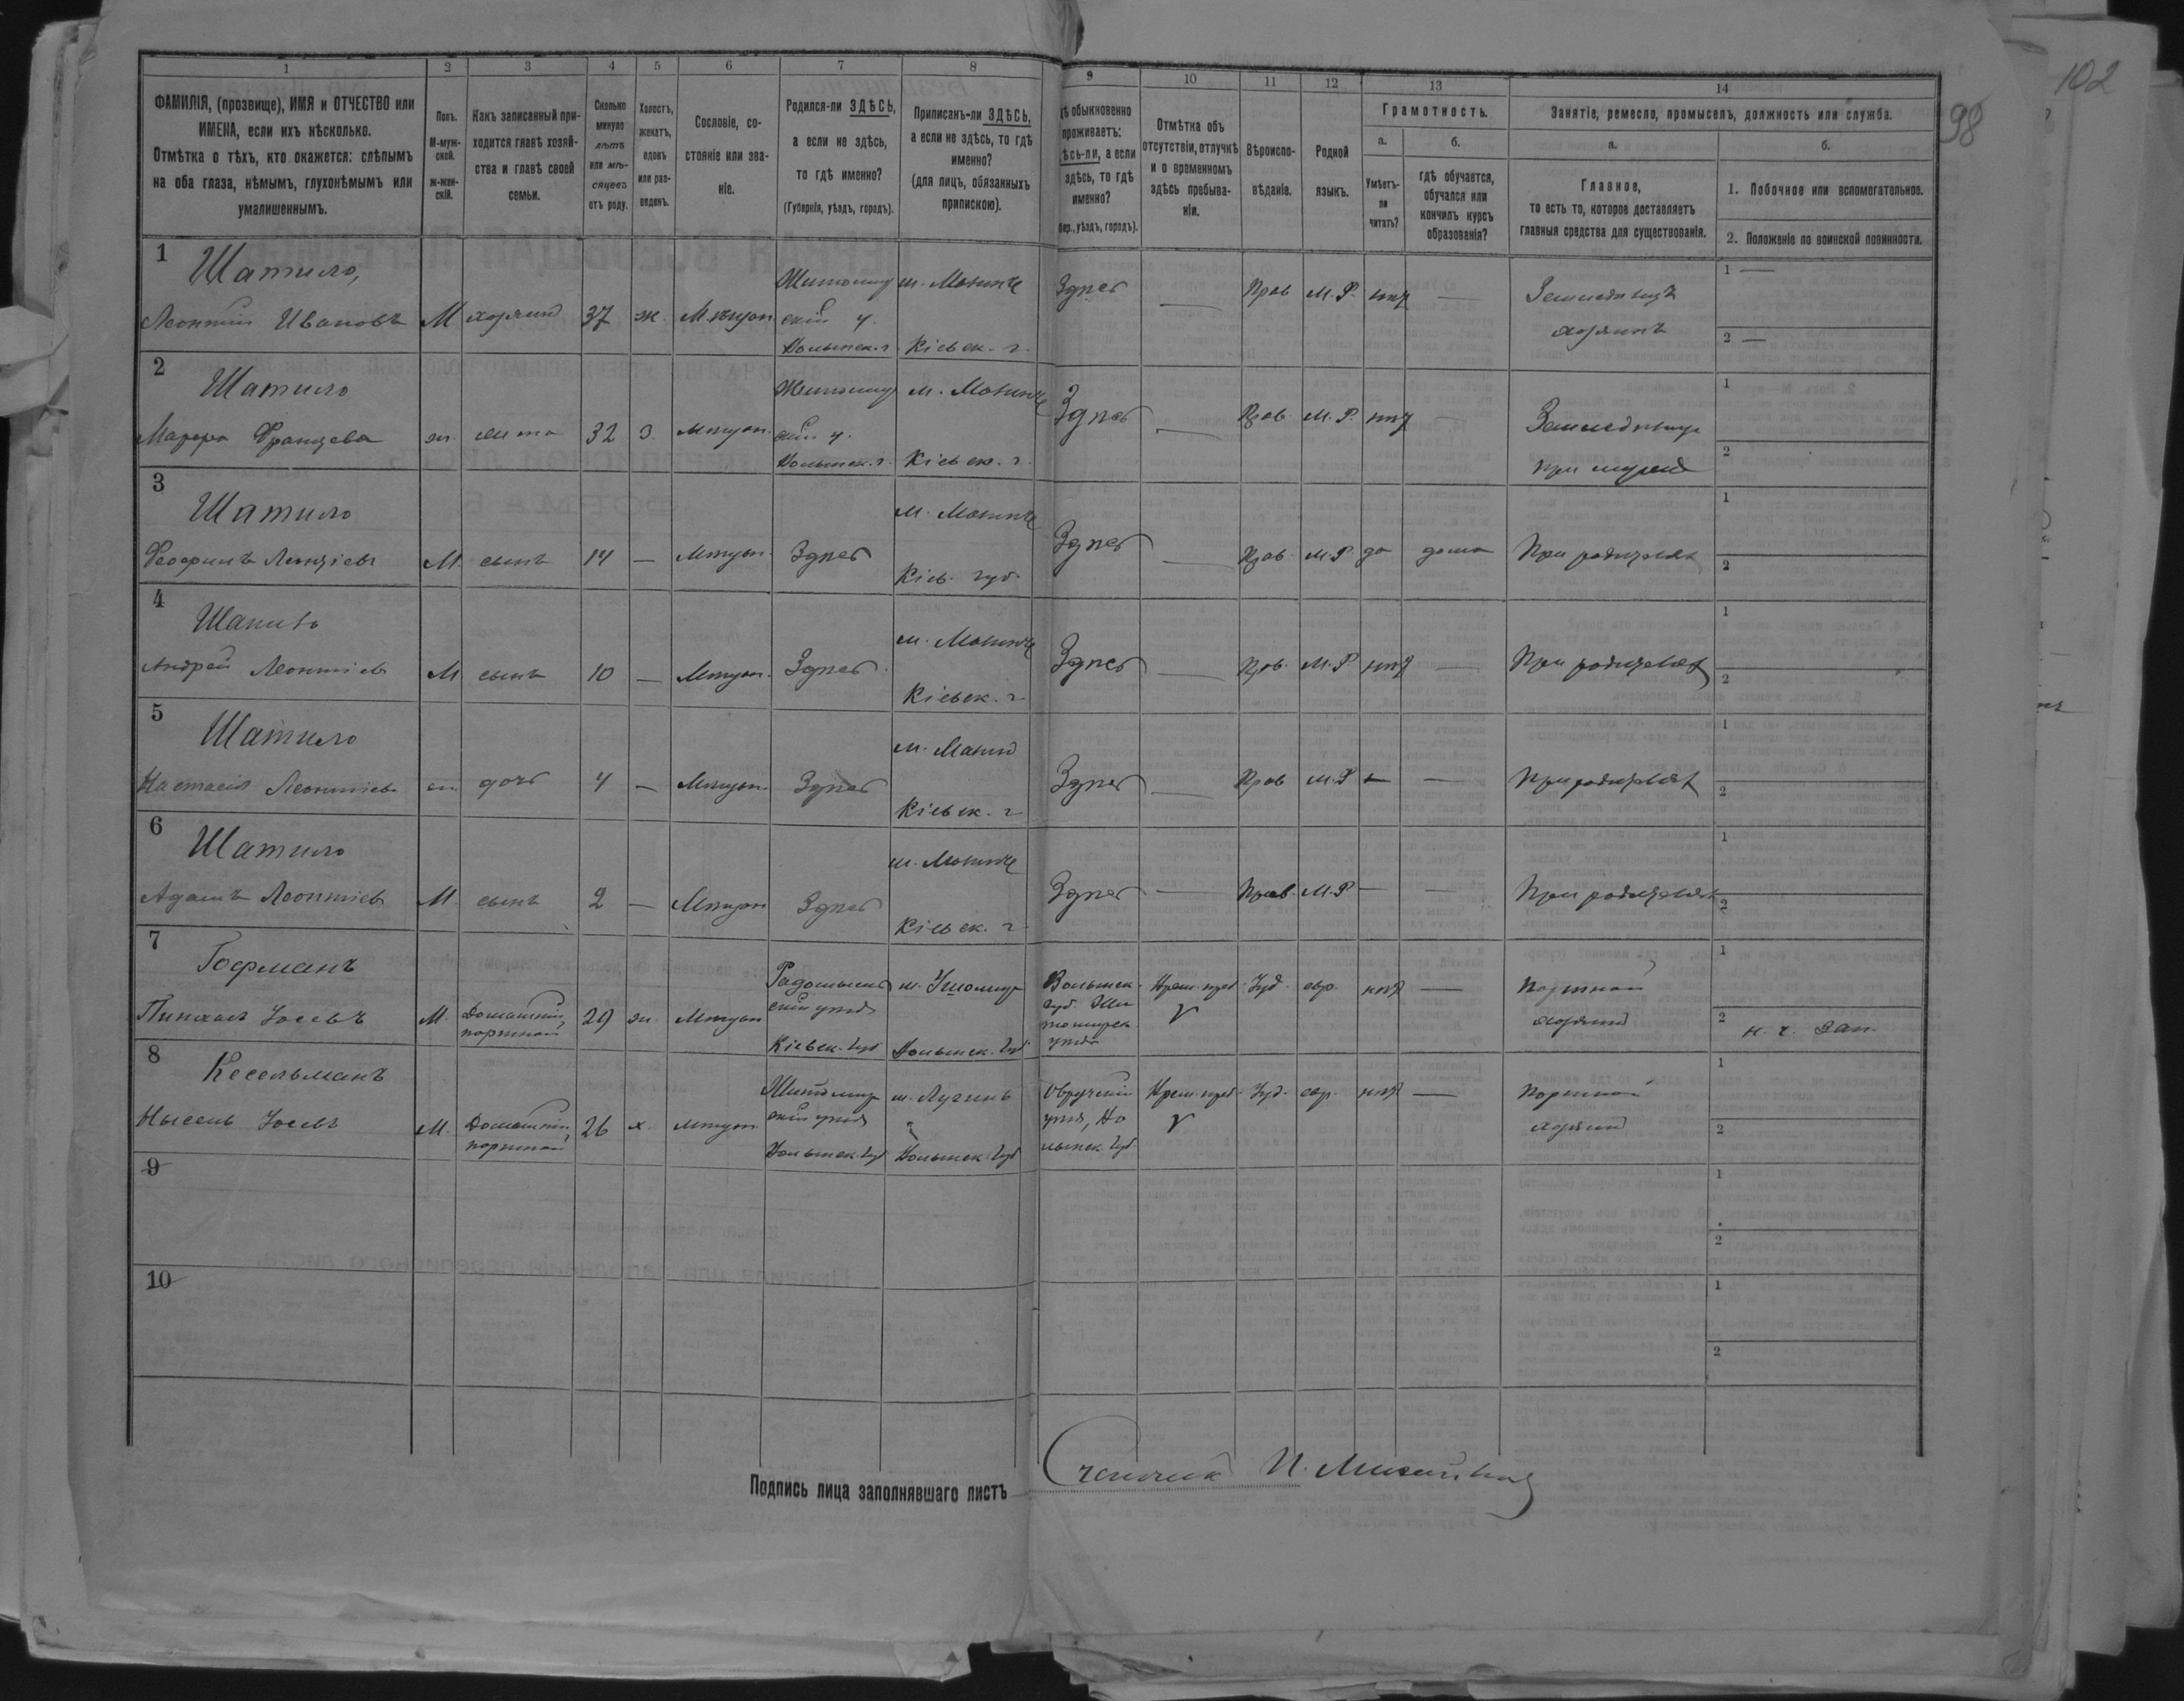 102
98
1 2 3 4 5 6 7 8 9 10 11 12 13 14
ФАМИЛІЯ, (прозвище), ИМЯ и ОТЧЕСТВО или
ИМЕНА, если ихъ нѣсколько.
Отмѣтка о тѣхъ, кто окажется: слѣпымъ
на оба глаза, нѣмымъ, глухонѣмымъ или
умалишеннымъ.
Полъ.
М-муж-
ской.
ж-жен-
скій.
Какъ записанный при-
ходится главѣ хозяй-
ства и главѣ своей
семьи.
Сколько
минуло
лѣтъ
или мѣ-
сяцевъ
отъ роду.
Холостъ,
женатъ,
вдовъ
или раз-
веденъ.
Сословіе, со-
стояніе или зва-
ніе.
Родился-ли ЗДѢСЬ,
а если не здѣсь,
то гдѣ именно?
(Губернія, уѣздъ, городъ).
Приписанъ-ли ЗДѢСЬ,
а если не здѣсь, то гдѣ
именно?
(для лицъ, обязанныхъ
припискою).
дѣ обыкновенно
проживаетъ:
ѣсь-ли, а если
здѣсь, то гдѣ
именно?
бер., уѣздъ, городъ).
Отмѣтка объ
отсутствіи, отлучкѣ
и о временномъ
здѣсь пребыва-
ніи.
Вѣроиспо-
вѣданіе.
Родной
языкъ.
Грамотность.
а.
Умѣетъ-
ли
читать?
б.
гдѣ обучается,
обучался или
кончилъ курсъ
образованія?
Занятіе, ремесло, промыселъ, должность или служба.
а.
Главное,
то есть то, которое доставляетъ
главныя средства для существованія.
б.
1. Побочное или вспомогательное.
2. Положеніе по воинской повинности.
1
Шатило,
Леонтій Ивановъ М хозяинъ 37 ж. Мѣщан
Житомир
скій у.
Волынск. г.
Кіевск. г.
Здѣсь — Прав М. Р. нѣт —
Земледѣлецъ
хозяинъ
1 —
2 —
2
Шатило
жена 32 З. Мѣщан.
Житомир
скій у.
Волынск. г.
Кіевск. г.
Здѣсь — Прав М. Р. нѣт —
при мужѣ
1
2
3
Шатило
М сынъ 14 — Мѣщан. Здѣсь
Кіев. губ.
Здѣсь — Прав. М. Р. да дома При родителях
1
2
4
Шатило
Андрей Леонтіев М сынъ 10 — Мѣщан. Здѣсь
Кіевск. г.
Здѣсь — Прав. М. Р. нѣт — При родителях
1
2
5
Шатило
Настасія Леонтіев дочь 4 — Мѣщан. Здѣсь
Кіевск. г.
Здѣсь — Прав М. Р — — При родителях
1
2
6
Шатило
Адамъ Леонтіев М. сынъ 2 — Мѣщан Здѣсь
Кіевск. г.
Здѣсь — Прав. М. Р — — При родителях
1
2
7
Гофманъ
Пинхас Іосевъ М. Домашній
портной
29 ж. Мѣщан
Радомысль
скій уѣзд
Кіевск. губ
м. Ушомир
Волынск. губ
Волынск.
губ. Жи
томирск
уѣзд
Врем. преб
V
Іуд. евр. нѣт —
Портной
хозяинъ
1
2
8
Кесельманъ
Іосевъ М. Домашній
портной
26 х. мѣщан
Житомир
скій уѣзд
Волынск. губ
м. Лугинъ
Волынск губ
Овручскій
уѣзд, Во
лынск. губ
Врем. преб.
V
Іуд. евр. нѣт —
Портной
хозяинъ
1
2
9
1
2
10
1
2
Подпись лица заполнявшаго листъ
Счетчик